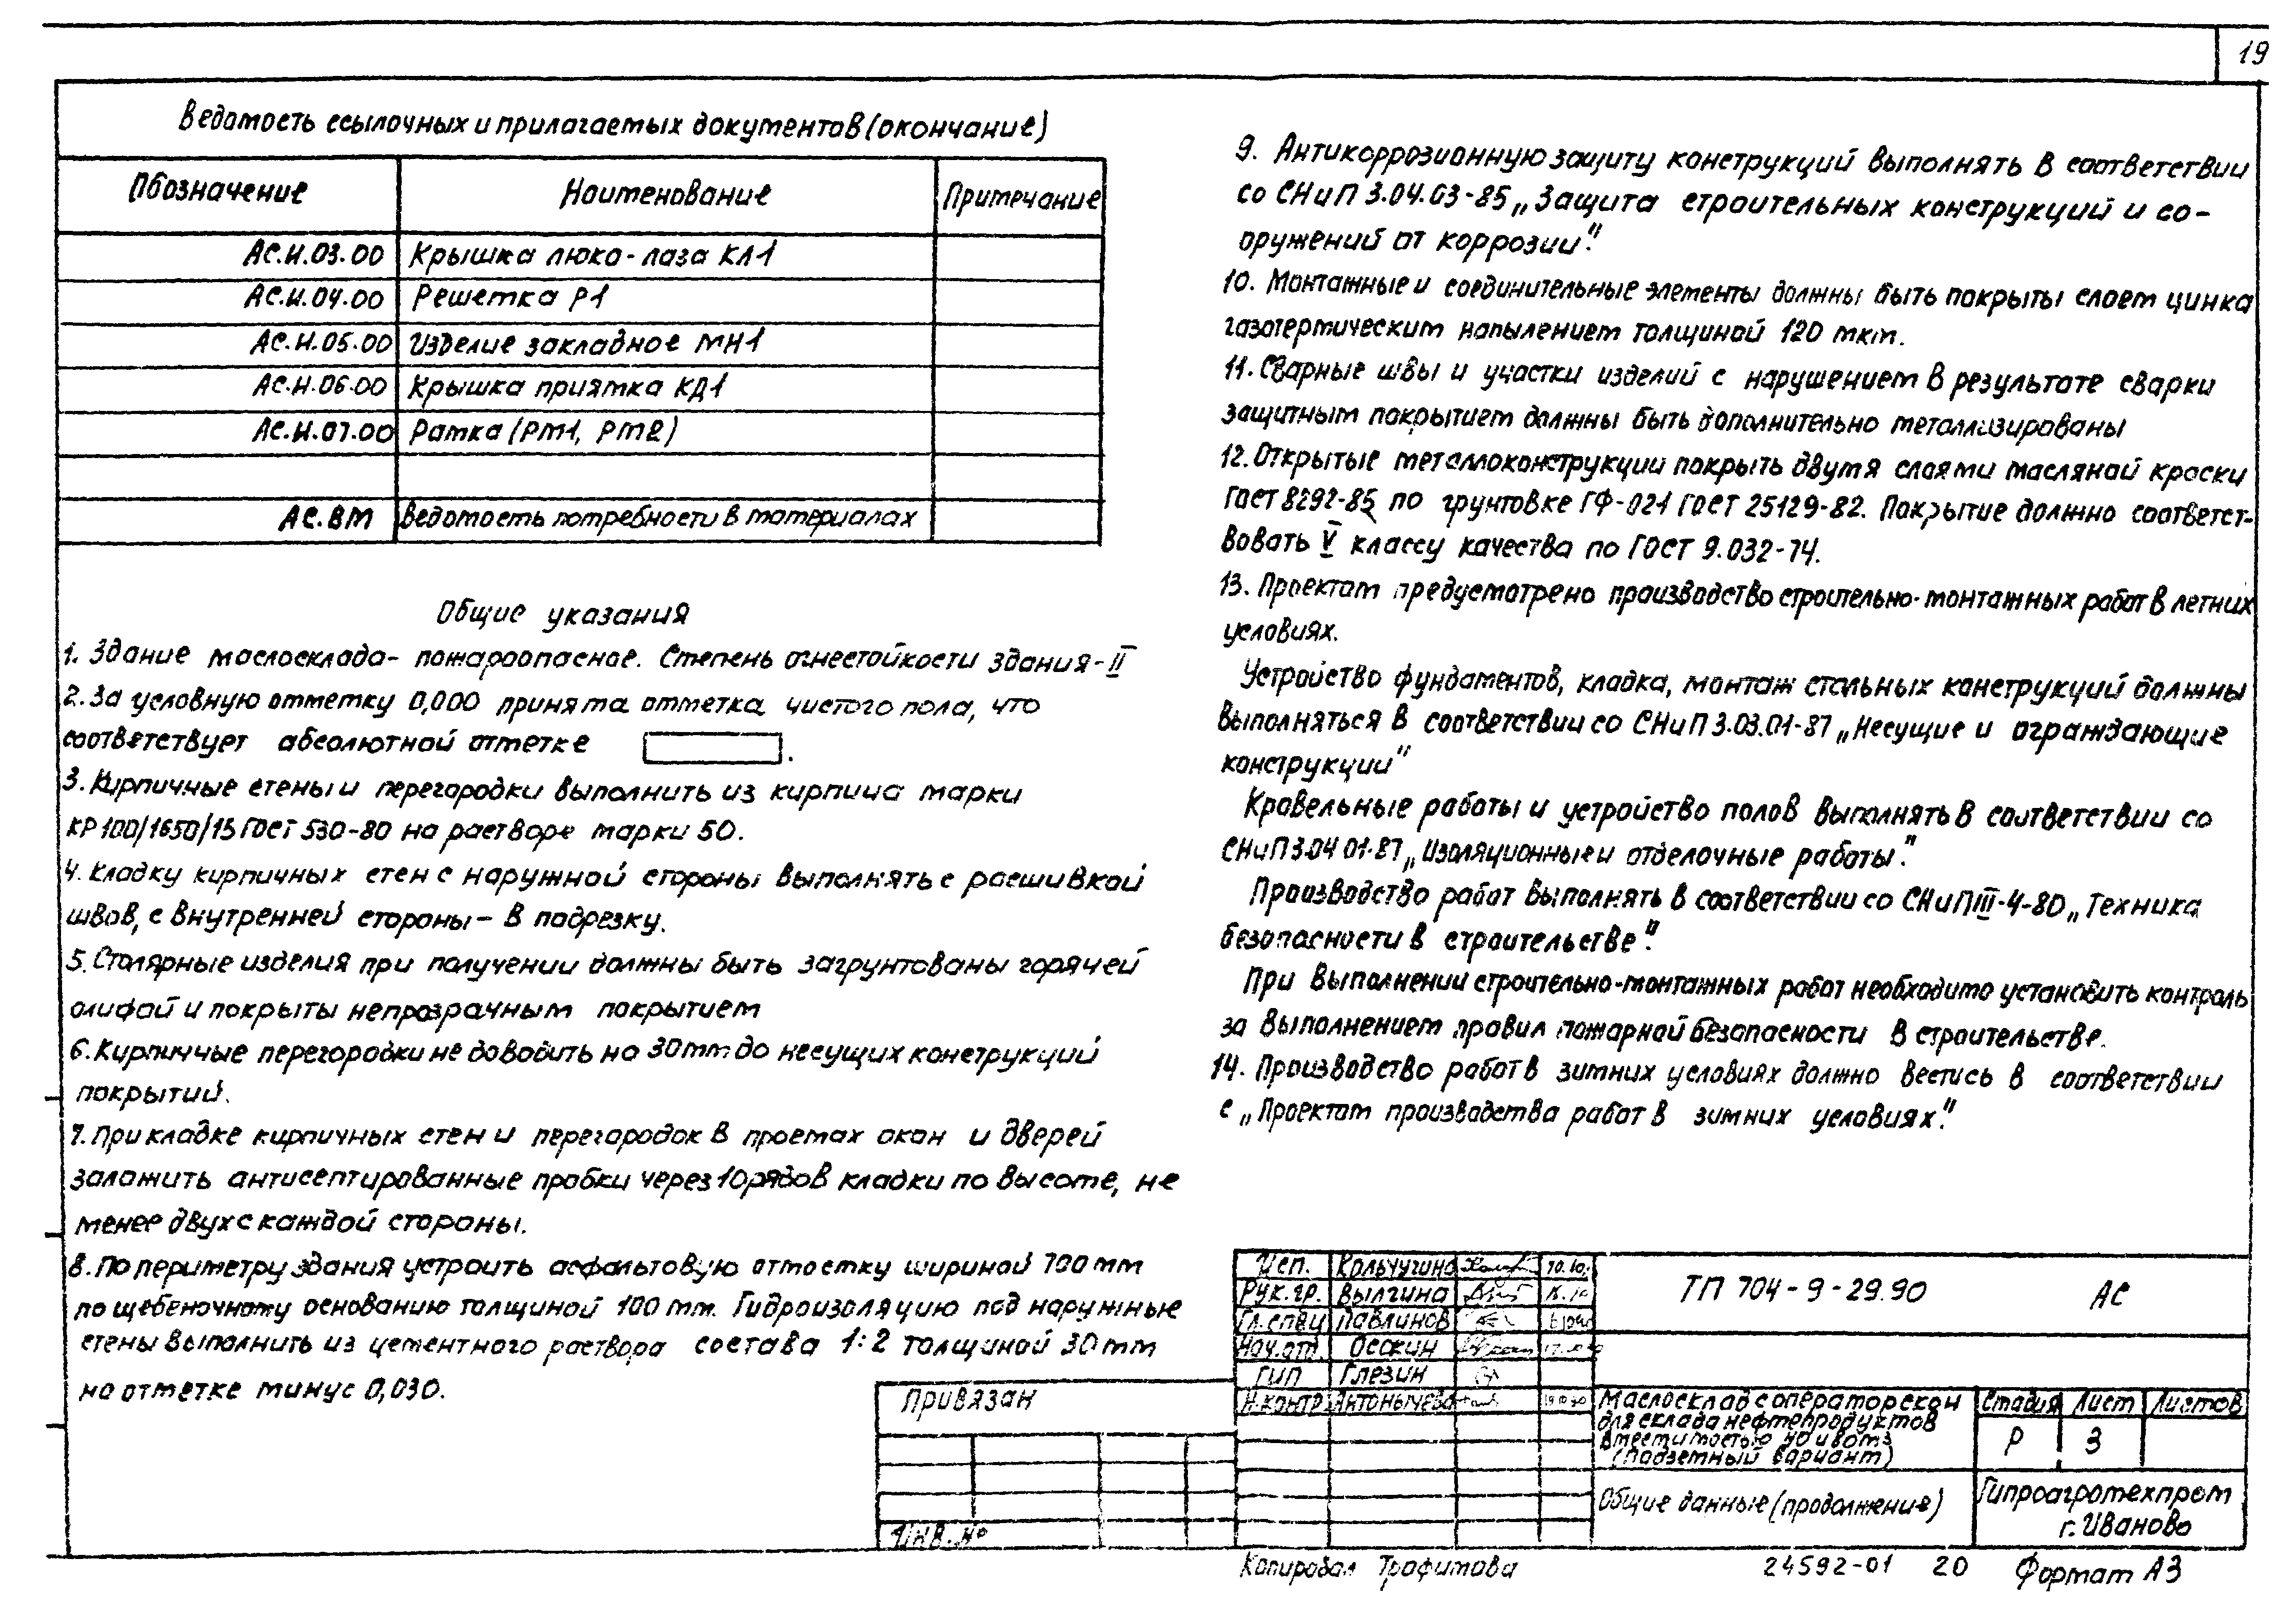 19
Ведомость ссылочных и прилагаемых документов (окончание)
Обозначение Наименование Примечание
АС.И.03.00 Крышка люка-лаза КЛ1
АС.И.04.00 Решетка Р1
АС.И.05.00 Изделие закладное МН1
АС.И.06.00 Крышка приямка КД1
АС.И.07.00 Рамка (РМ1, РМ2)
АС.ВМ Ведомость потребности в материалах
Общие указания
1. Здание маслосклада- пожароопасное. Степень огнестойкости здания-II
2. За условную отметку 0,000 принята отметка чистого пола, что
соответствует абсолютной отметке .
3. Кирпичные стены и перегородки выполнить из кирпича марки
КР 100/1650/15 ГОСТ 530-80 на растворе марки 50.
4. Кладку кирпичных стен с наружной стороны выполнять с расшивкой
швов, с внутренней стороны- в подрезку.
5. Столярные изделия при получении должны быть загрунтованы горячей
олифой и покрыты непрозрачным покрытием
6. Кирпичные перегородки не доводить на 30мм до несущих конструкций
покрытий.
7. При кладке кирпичных стен и перегородок в проемах окон и дверей
заложить антисептированные пробки через 10 рядов кладки по высоте, не
менее двух с каждой стороны.
8. По периметру здания устроить асфальтовую отмостку шириной 700мм
по щебеночному основанию толщиной 100 мм. Гидроизоляцию под наружные
стены выполнить из цементного раствора состава 1:2 толщиной 30мм
на отметке минус 0,030.
9. Антикоррозионную защиту конструкций выполнять в соответствии
со СНиП 3.04.03-85 „Защита строительных конструкций и со-
оружений от коррозии".
10. Монтажные и соединительные элементы должны быть покрыты слоем цинка
газотермическим напылением толщиной 120 мкм.
11. Сварные швы и участки изделий с нарушением в результате сварки
защитным покрытием должны быть дополнительно металлизированы
12. Открытые металлоконструкции покрыть двумя слоями масляной краски
ГОСТ 8292-85 по грунтовке ГФ-021 ГОСТ 25129-82. Покрытие должно соответст-
вовать V классу качества по ГОСТ 9.032-74.
13. Проектом предусмотрено производство строительно-монтажных работ в летних
условиях.
Устройство фундаментов, кладка, монтаж стальных конструкций должны
выполняться в соответствии со СНиП 3.03.01-87 „Несущие и ограждающие
конструкции"
Кровельные работы и устройство полов выполнять в соответствии со
СНиП 3.04 01-87 „Изоляционные и отделочные работы".
Производство работ выполнять в соответствии со СНиП III-4-80 „Техника
безопасности в строительстве".
При выполнении строительно-монтажных работ необходимо установить контроль
за выполнением правил пожарной безопасности в строительстве.
14. Производство работ в зимних условиях должно вестись в соответствии
с „Проектом производства работ в зимних условиях".
Привязан
Инв. №
Исп. Кольчугина 10.10.
Рук.гр. Вылгина
Гл.спец Павлинов
Нач.отд. Оескин
ГИП Глезин
Н.контр. Антонычева
ТП 704-9-29.90 АС
Маслосклад с операторской
для склада нефтепродуктов
вместимостью
(подземный вариант)
Стадия Лист Листов
Р 3
Общие данные (продолжение)
Гипроагротехпром
г. Иваново
Копировал Трофимова 24592-01 20 Формат А3